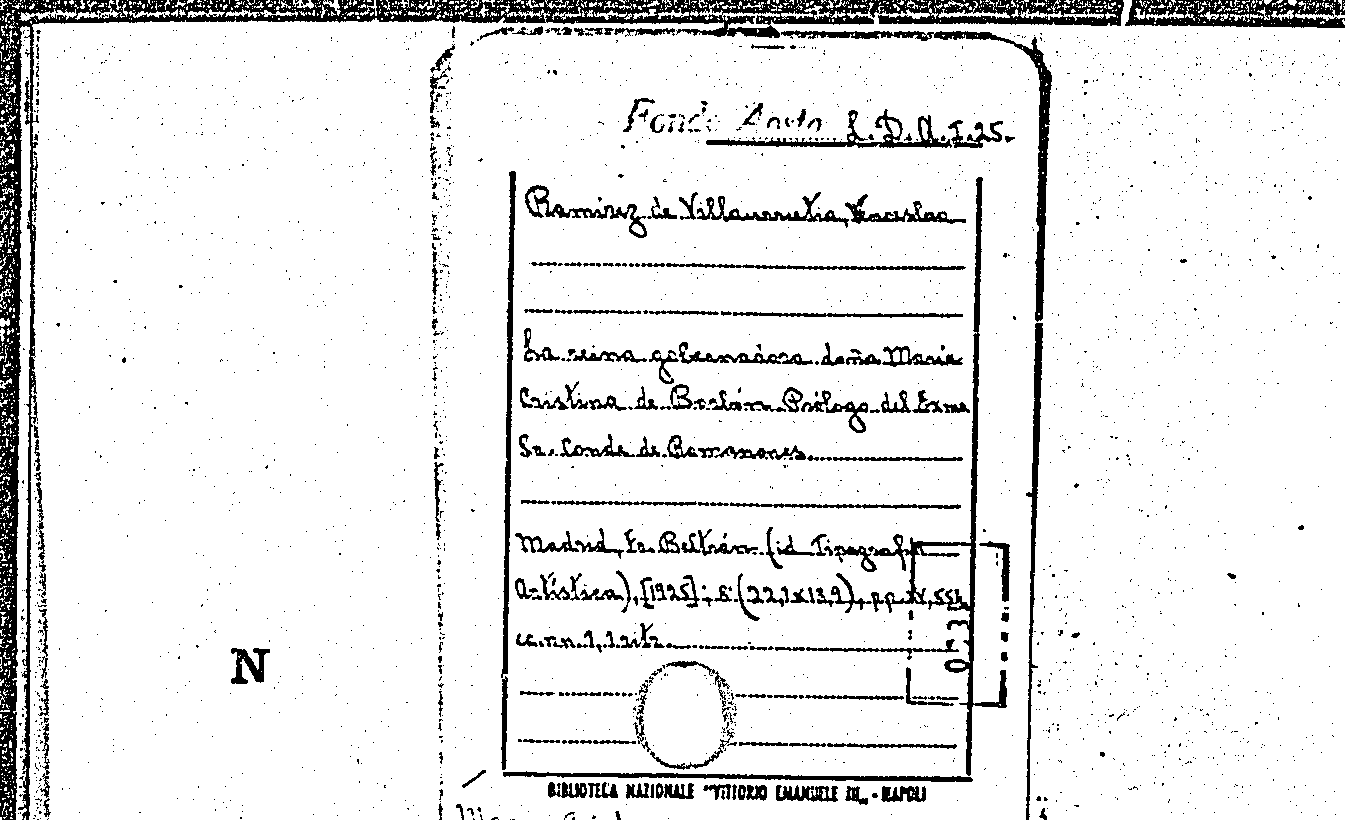 Fondo Aosta L.D.A.I.25.
Ramirez de Villaurrutia, Venceslao
La reina gobernadora doña Maria
Cristina de Borbón. Prólogo del Exmo
Sr. Conde de Romanones.
Madrid, Fr. Beltrán (id. Tipografia
Artística), [1925]; 8° (22,1x13,9), pp. XV, 554,
cc.nn. 1, 1 ritr.
N
BIBLIOTECA NAZIONALE "VITTORIO EMANUELE III„ - NAPOLI